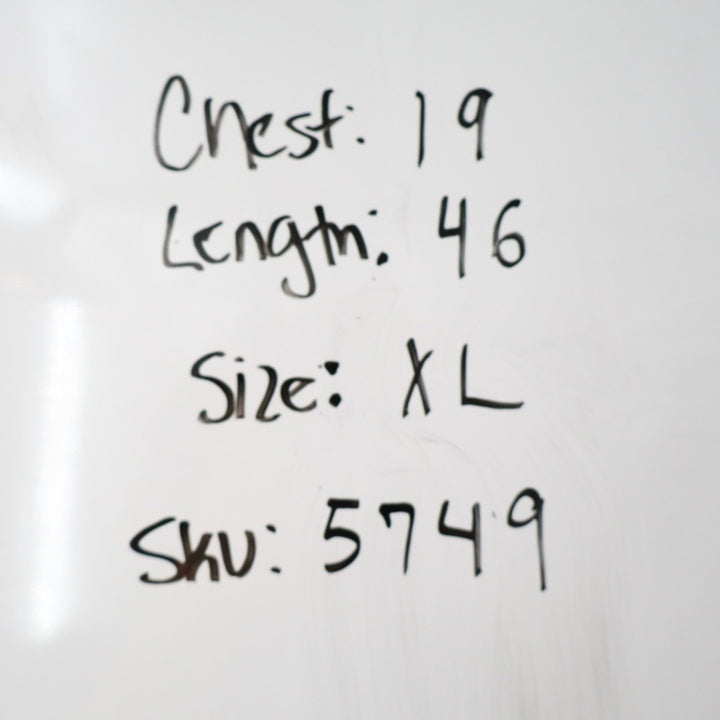 Chest: 19
Length: 46
Size: XL
Sku: 5749